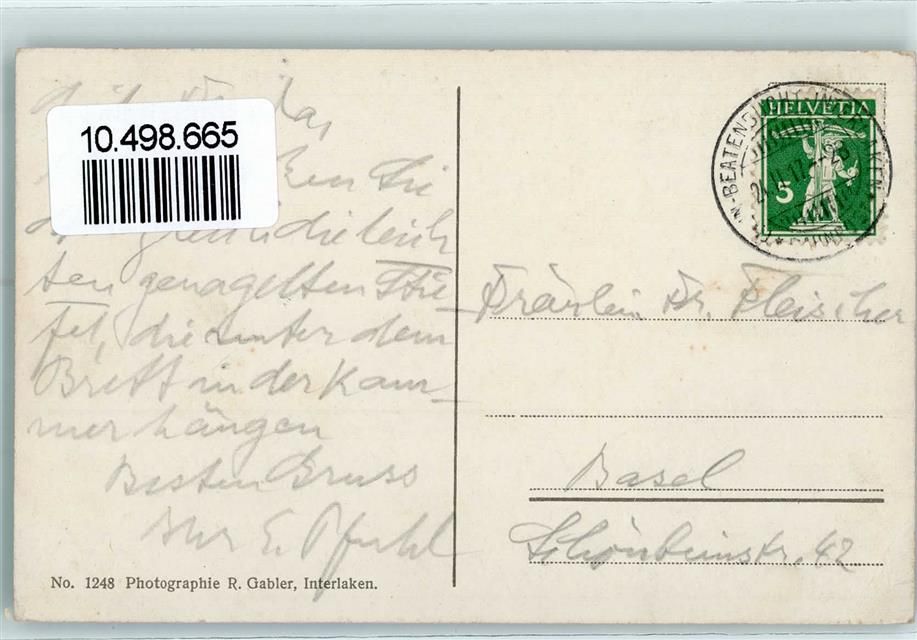 10.498.665
das
Sie
die leich
ten genagelten Stie
fel, die unter dem
Brett in der Kam-
mer hängen
Besten Gruss
Ihr E. Pfuhl
No. 1248 Photographie R. Gabler, Interlaken.
HELVETIA
5
Fräulein Dr. Fleischer
Basel
Schönbeinstr. 42